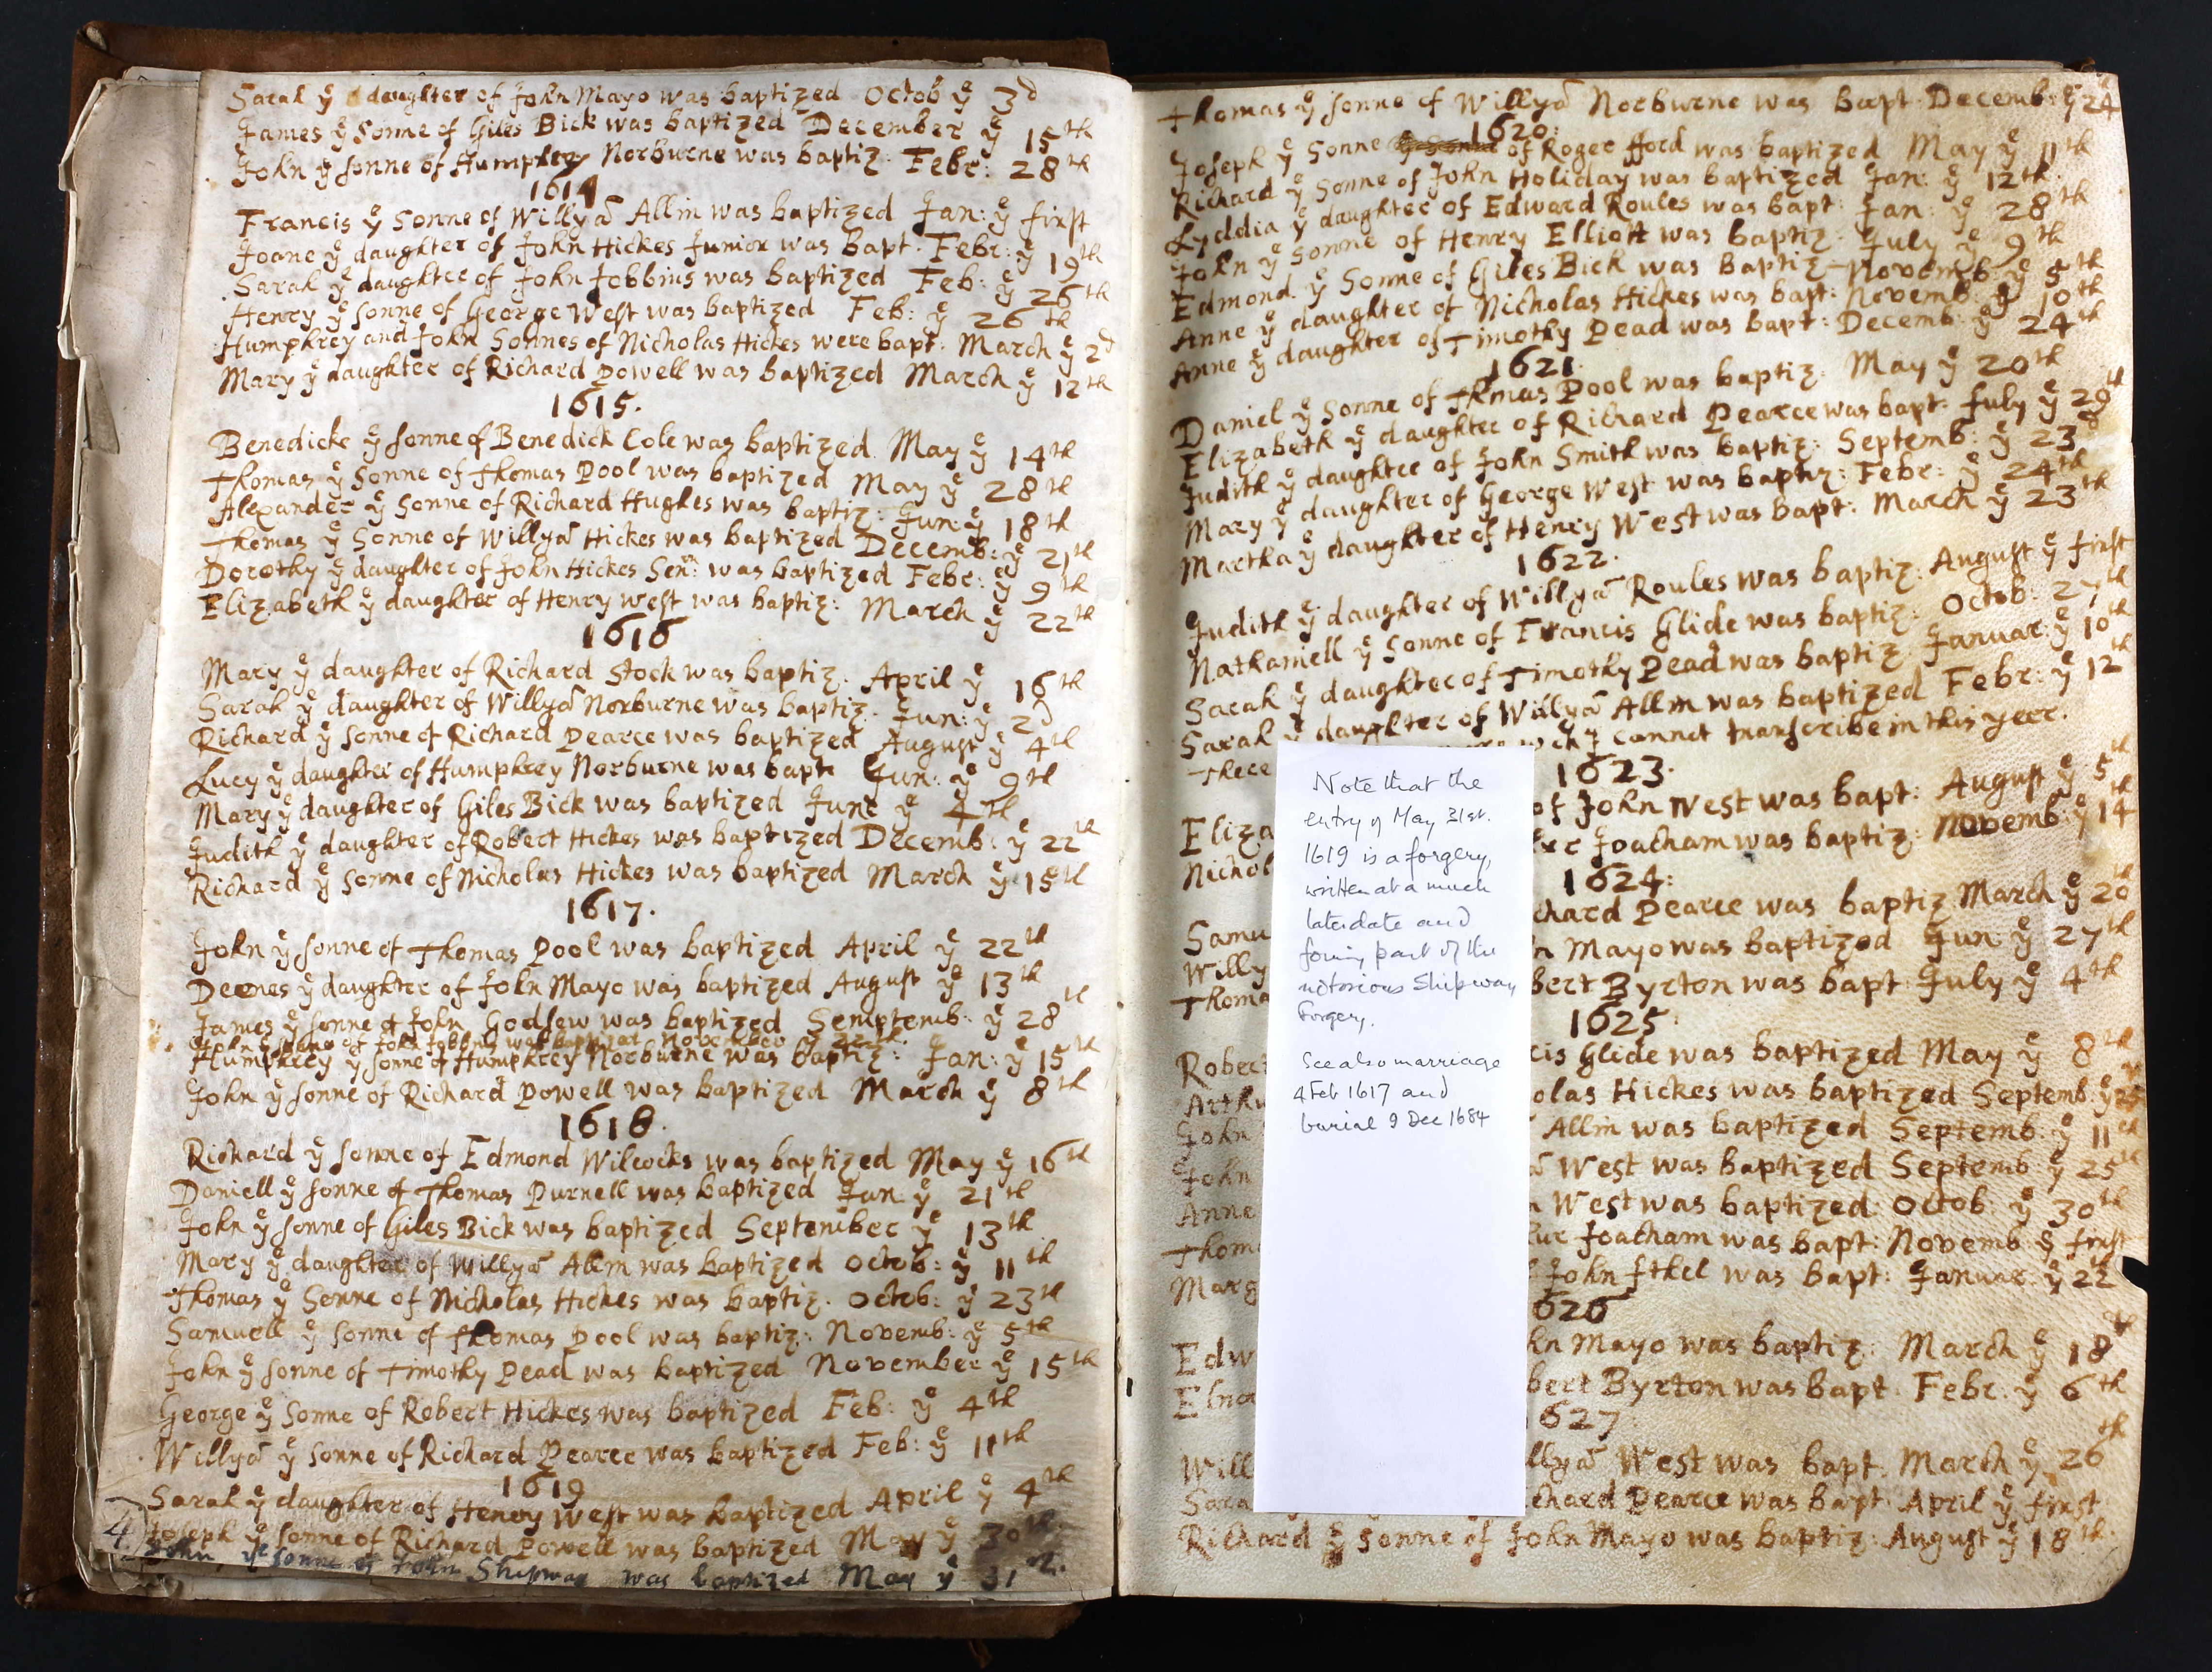 Sarah yͤ daughter of John Mayo was baptized Octob yͤ 3ᵈ
James yͤ Sonne of Giles Bick was baptized December yͤ 15ᵗʰ
John yͤ sonne of Humphrey Norburne was baptiz: Febr: 28ᵗʰ
1614
Francis yͤ Sonne of Willyã Allin was baptized Jan: yͤ first
Joane yͤ daughter of John Hickes Junior was bapt. Febr: yͤ 19ᵗʰ
Sarah yͤ daughter of John Jobbins was baptized Feb: yͤ 26ᵗʰ
Henry yͤ sonne of George West was baptized Feb: yͤ 26ᵗʰ
Humphrey and John Sonnes of Nicholas Hickes were bapt. March yͤ 2ᵈ
Mary yͤ daughter of Richard Powell was baptized March yͤ 12ᵗʰ
1615.
Benedicke yͤ sonne of Benedick Cole was baptized May yͤ 14ᵗʰ
Thomas yͤ Sonne of Thomas Pool was baptized May yͤ 28ᵗʰ
Alexander yͤ Sonne of Richard Hughes was baptiz: Jun: yͤ 18ᵗʰ
Thomas yͤ Sonne of Willyã Hickes was baptized Decemb: yͤ 21ᵗʰ
Dorothy yͤ daughter of John Hickes Senʳ: was baptized Febr: yͤ 9ᵗʰ
Elizabeth yͤ daughter of Henry West was baptiz: March yͤ 22ᵗʰ
1616
Mary yͤ daughter of Richard Stock was baptiz. April yͤ 16ᵗʰ
Sarah yͤ daughter of Willyã Norburne was baptiz. Jun: yͤ 2ᵈ
Richard yͤ sonne of Richard Pearce was baptized August yͤ 4ᵗʰ
Lucy yͤ daughter of Humphrey Norburne was bapt: Jun: yͤ 9ᵗʰ
Mary yͤ daughter of Giles Bick was baptized June yͤ 4ᵗʰ
Judith yͤ daughter of Robert Hickes was baptized Decemb: yͤ 22ᵗʰ
Richard yͤ Sonne of Nicholas Hickes was baptized March yͤ 15ᵗʰ
1617.
John yͤ sonne of Thomas Pool was baptized April yͤ 22ᵗʰ
Deones yͤ daughter of John Mayo was baptized August yͤ 13ᵗʰ
James yͤ sonne of John Godsew was baptized Semptemb: yͤ 28ᵗʰ
John yͤ sonne of John Jobbins was baptized November yͤ 22ᵗʰ
Humphrey yͤ sonne of Humphrey Norburne was baptiz: Jan: yͤ 15ᵗʰ
John yͤ sonne of Richard Powell was baptized March yͤ 8ᵗʰ
1618.
Richard yͤ sonne of Edmond Wilcocks was baptized May yͤ 16ᵗʰ
Daniell yͤ sonne of Thomas Purnell was baptized Jun: yͤ 21ᵗʰ
John yͤ sonne of Giles Bick was baptized September yͤ 13ᵗʰ
Mary yͤ daughter of Willyã Allin was baptized Octob: yͤ 11ᵗʰ
Thomas yͤ Sonne of Nicholas Hickes was baptiz. Octob: yͤ 23ᵗʰ
Samuell yͤ sonne of Thomas Pool was baptiz: Novemb: yͤ 5ᵗʰ
John yͤ sonne of Timothy Pead was baptized November yͤ 15ᵗʰ
George yͤ Sonne of Robert Hickes was baptized Feb: yͤ 4ᵗʰ
Willyã yͤ sonne of Richard Pearce was baptized Feb: yͤ 11ᵗʰ
1619
Sarah yͤ daughter of Henry West was baptized April yͤ 4ᵗʰ
4 Joseph yͤ sonne of Richard Powell was baptized May yͤ 30ᵗʰ
John yͤ sonne of John Shipway was baptized May yͤ 31
Thomas yͤ sonne of Willyã Norburne was Bapt: Decemb: yͤ 24
1620:
Joseph yͤ Sonne of Roger fford was baptized May yͤ 11ᵗʰ
Richard yͤ Sonne of John Holiday was baptized Jan: yͤ 12ᵗʰ
Lyddia yͤ daughter of Edward Roules was bapt: Jan: yͤ 28ᵗʰ
John yͤ Sonne of Henry Elliott was baptiz. July yͤ 9ᵗʰ
Edmond yͤ Sonne of Giles Bick was Baptiz Novemb: yͤ 5ᵗʰ
Anne yͤ daughter of Nicholas Hickes was bapt: Novemb: yͤ 10ᵗʰ
Anne yͤ daughter of Timothy Pead was bapt: Decemb: yͤ 24ᵗʰ
1621
Daniel yͤ Sonne of Thomas Pool was baptiz: May yͤ 20ᵗʰ
Elizabeth yͤ daughter of Richard Pearce was bapt: July yͤ 29ᵗʰ
Judith yͤ daughter of John Smith was baptiz: Septemb: yͤ 23ᵈ
Mary yͤ daughter of George West was baptiz: Febr: yͤ 24ᵗʰ
Martha yͤ daughter of Henry West was bapt: March yͤ 23ᵗʰ
1622.
Judith yͤ daughter of Willyã Roules was baptiz: August yͤ first
Nathaniell yͤ Sonne of Francis Glide was baptiz: Octob: 27ᵗʰ
Sarah yͤ daughter of Timothy Pead was baptiz: Januar: yͤ 10ᵗʰ
Sarah yͤ daughter of Willyã Allin was baptized Febr: yͤ 12ᵗʰ
There wᶜʰ I cannot transcribe in this yeer.
1623.
Eliza of John West was bapt: August yͤ 5ᵗʰ
Nichol Joacham was baptiz: Novemb: yͤ 14ᵗʰ
1624:
Samu chard Pearce was baptiz March yͤ 20ᵗʰ
Willy n Mayo was baptized Jun: yͤ 27ᵗʰ
Thoma bert Byrton was bapt July yͤ 4ᵗʰ
1625
Robert cis Glide was baptized May yͤ 8ᵗʰ
Arthu olas Hickes was baptized Septemb: yͤ 25
John Allin was baptized Septemb: yͤ 11ᵗʰ
John West was baptized Septemb yͤ 25ᵗʰ
Anne West was baptized Octob: yͤ 30ᵗʰ
Thom ur Joacham was bapt: Novemb yͤ first
Marg John was bapt: Januar: yͤ 22
626
Edw hn Mayo was baptiz: March yͤ 18ᵗʰ
Elno bert Byrton was bapt. Febr. yͤ 6ᵗʰ
627
Will llyã West was bapt. March yͤ 26ᵗʰ
Sara chard Pearce was bapt April yͤ first
Richard yͤ sonne of John Mayo was baptiz: August yͤ 18ᵗʰ
Note that the
entry of May 31st.
1619 is a forgery,
written at a much
later date and
forming part of the
notorious Shipway
Forgery.
See also marriage
4 Feb 1617 and
burial 9 Dec 1684